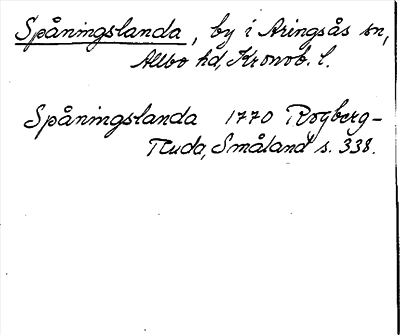 Spåningslanda, by i Aringsås sn,
Allbo hd, Kronob. l.
Spåningslanda 1770 Rogberg-
Ruda, Småland s. 338.